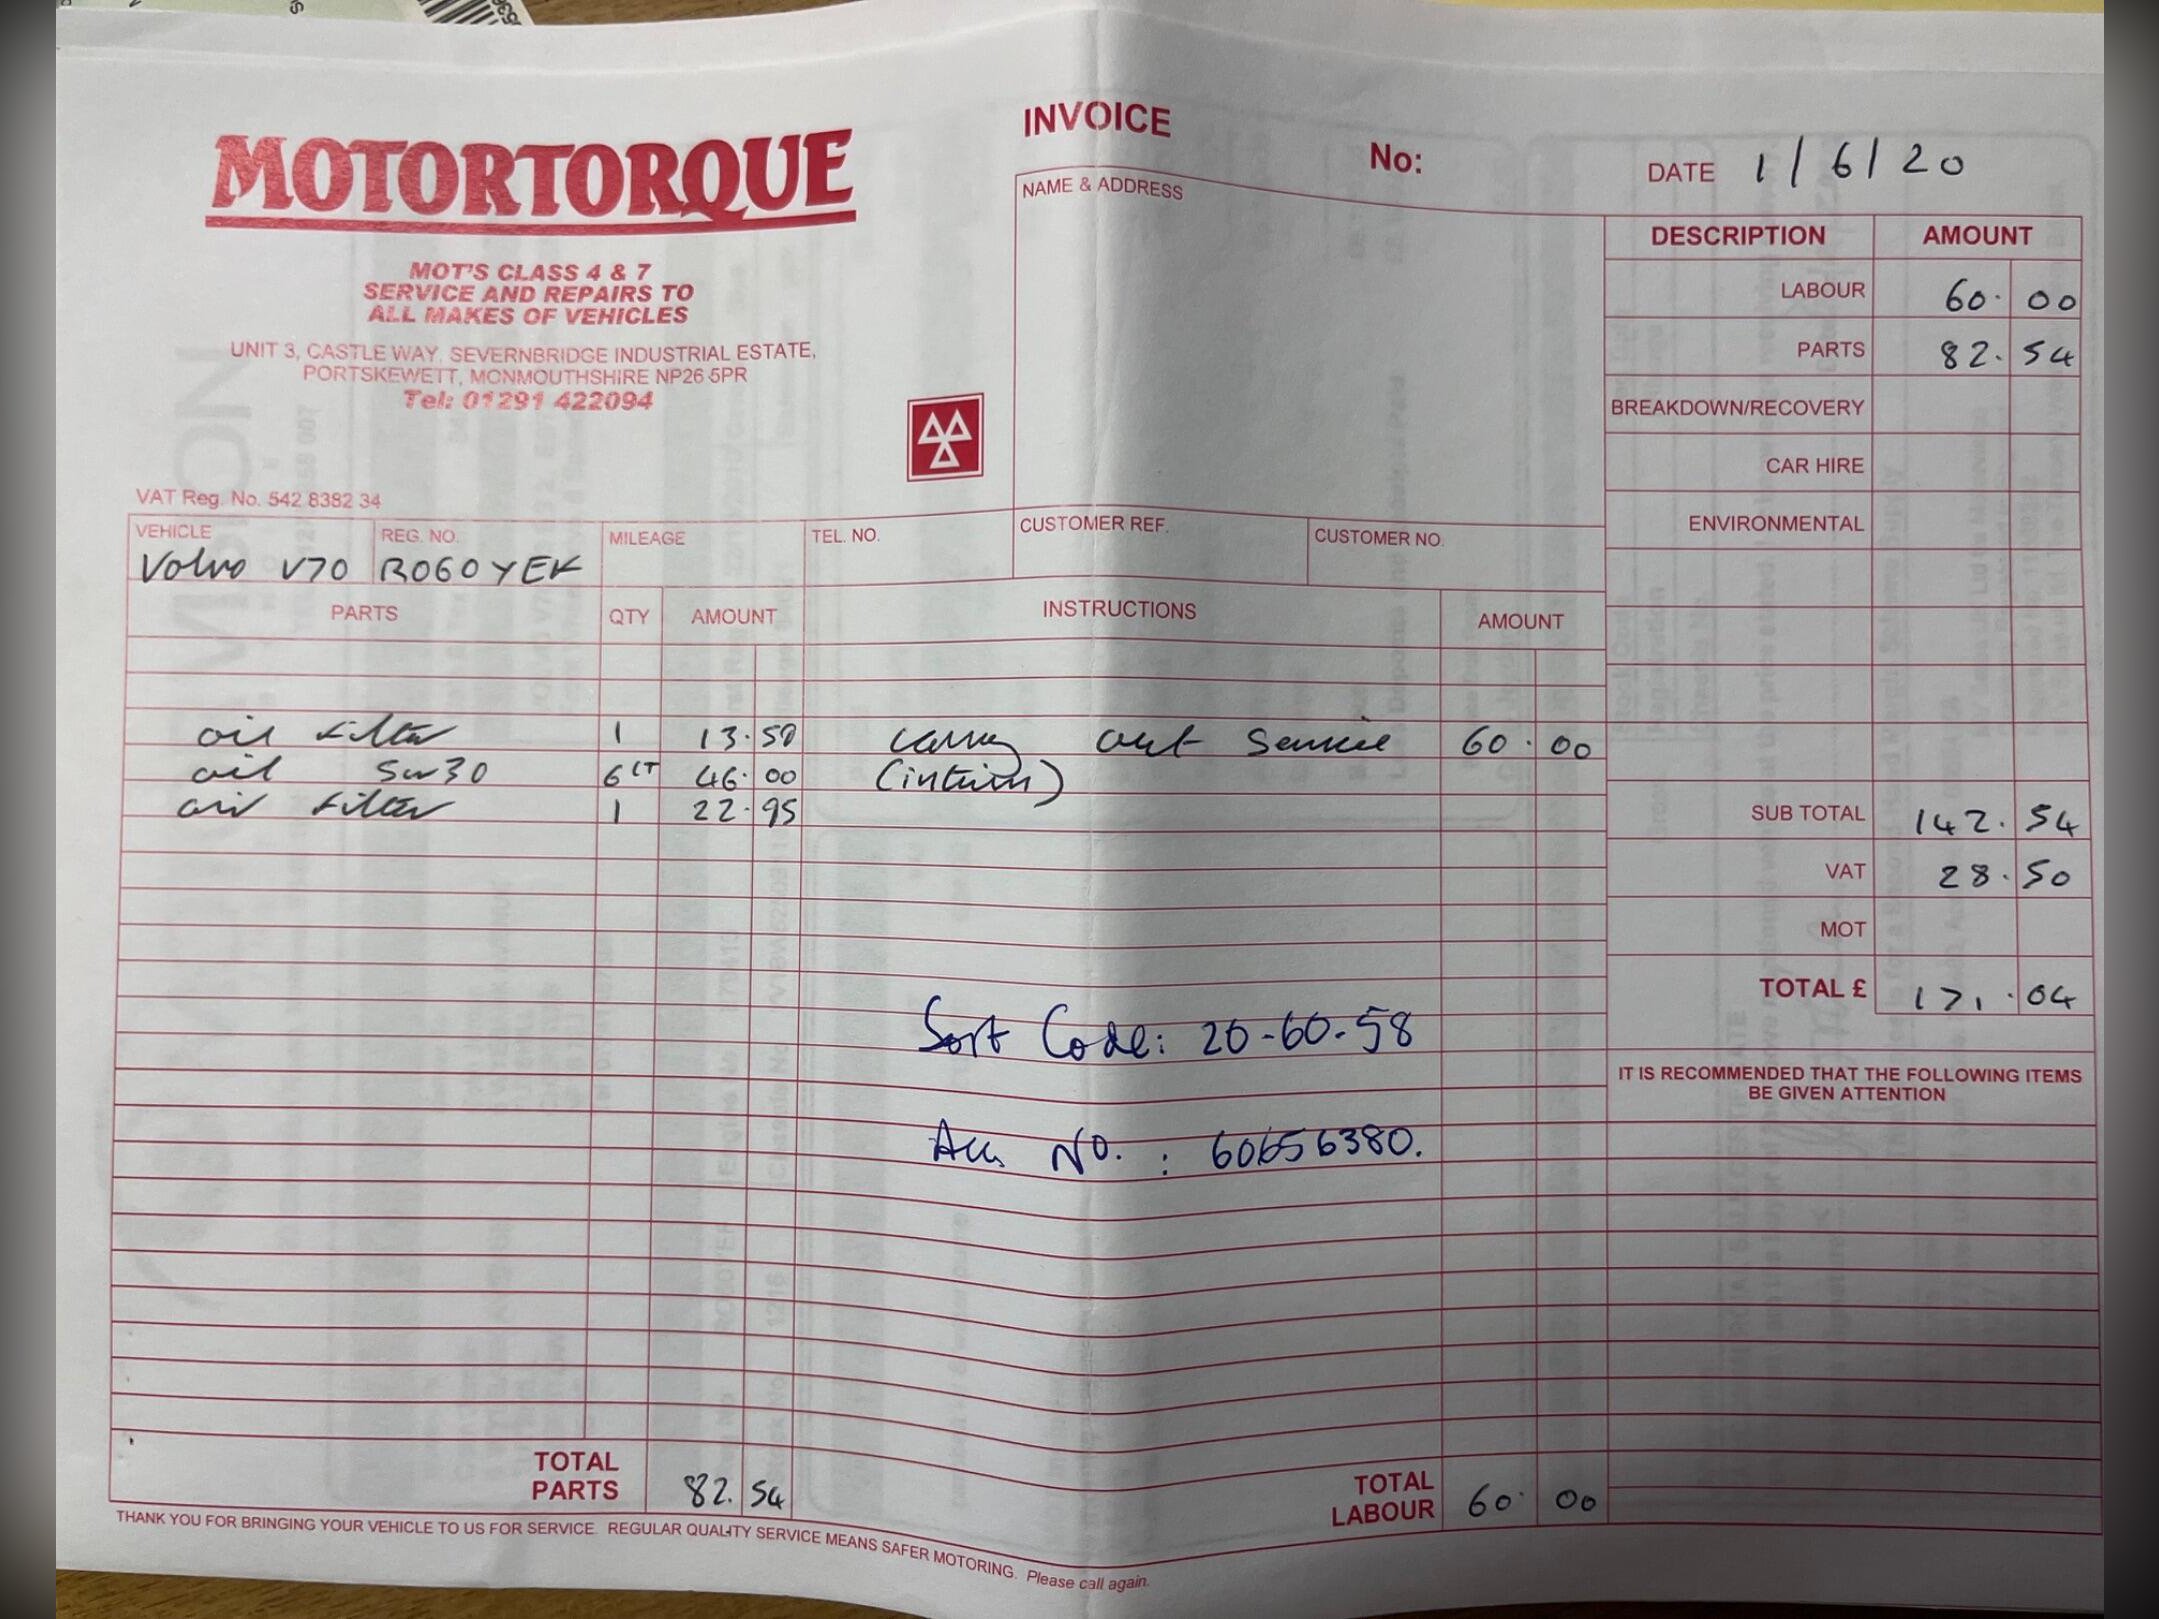 MOTORTORQUE
MOT'S CLASS 4 & 7
SERVICE AND REPAIRS TO
ALL MAKES OF VEHICLES
UNIT 3, CASTLE WAY, SEVERNBRIDGE INDUSTRIAL ESTATE,
PORTSKEWETT, MONMOUTHSHIRE NP26 5PR
Tel: 01291 422094
VAT Reg. No. 542 8382 34
INVOICE
No:
DATE 1/6/20
NAME & ADDRESS
VEHICLE REG. NO. MILEAGE TEL. NO. CUSTOMER REF. CUSTOMER NO.
Volvo V70 RO60YEK
PARTS QTY AMOUNT INSTRUCTIONS AMOUNT
oil filter 1 13.50 carry out service 60.00
oil 5w30 6LT 46.00 (interim)
air filter 1 22.95
Sort Code: 20-60-58
Acc No. : 60656380.
TOTAL PARTS 82.54
TOTAL LABOUR 60.00
DESCRIPTION AMOUNT
LABOUR 60.00
PARTS 82.54
BREAKDOWN/RECOVERY
CAR HIRE
ENVIRONMENTAL
SUB TOTAL 142.54
VAT 28.50
MOT
TOTAL £ 171.04
IT IS RECOMMENDED THAT THE FOLLOWING ITEMS
BE GIVEN ATTENTION
THANK YOU FOR BRINGING YOUR VEHICLE TO US FOR SERVICE. REGULAR QUALITY SERVICE MEANS SAFER MOTORING. Please call again.